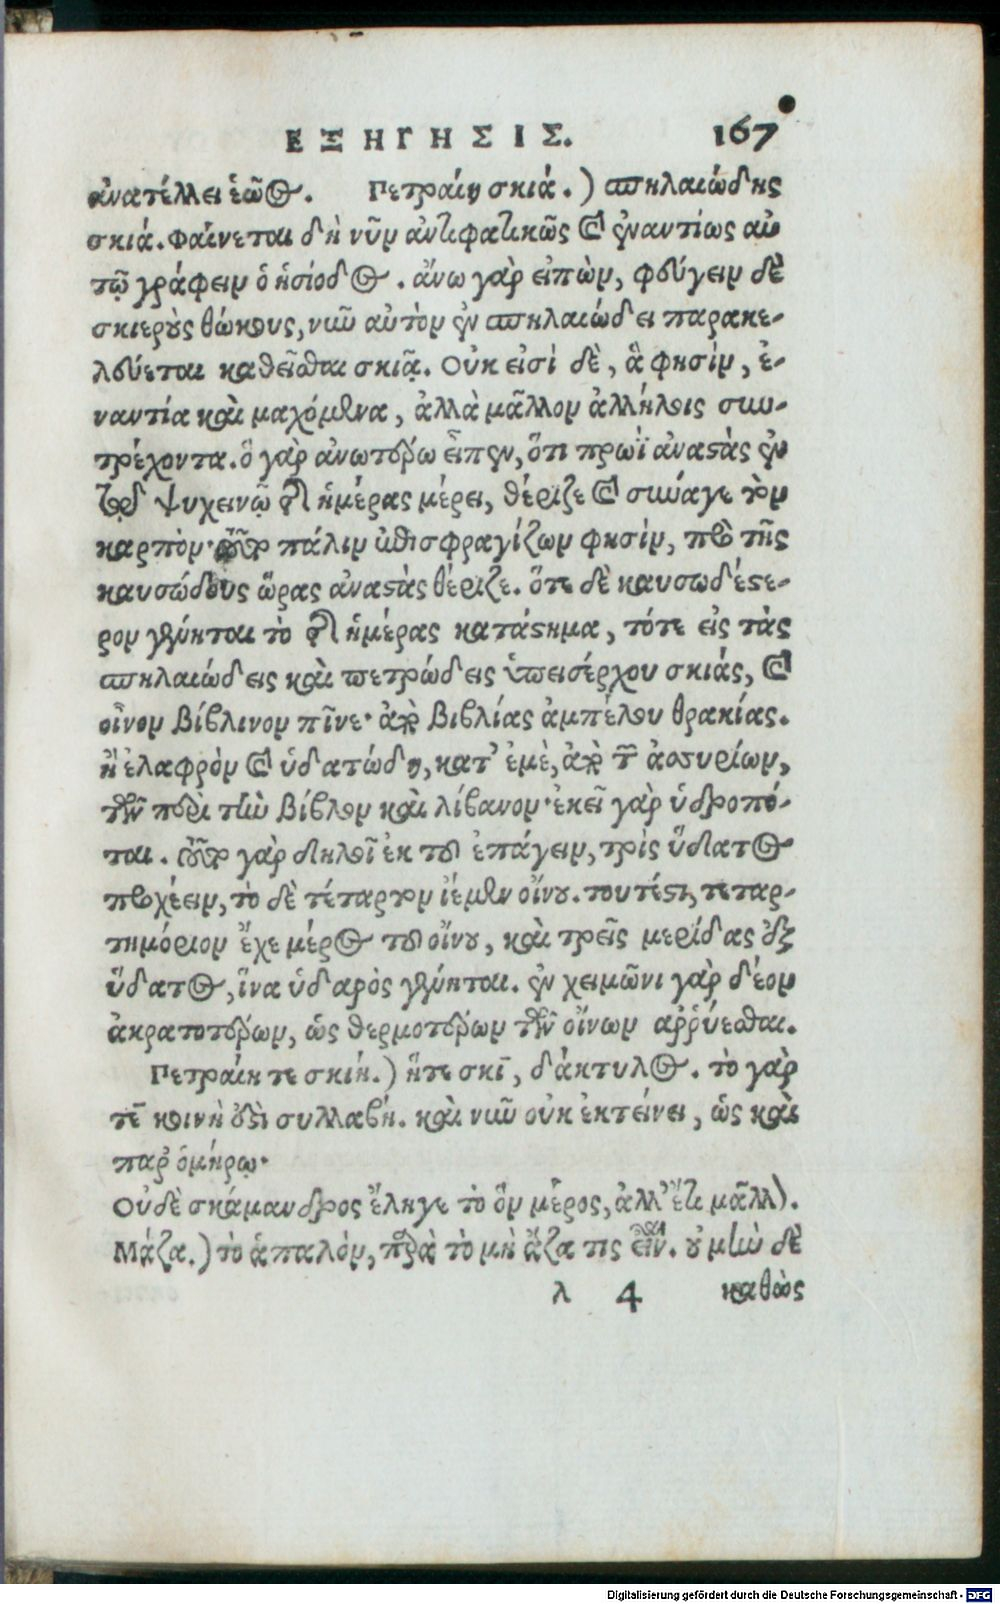 ΕΞΗΓΗΣΙΣ. 167
ἀνατέλλει ἑῶος. Πετραίη σκιά.) σπηλαιώδης
σκιά. Φαίνεται δὴ νῦν ἀντιφατικῶς καὶ ἐναντίως αὐ
τῷ γράφειν ὁ ἡσίοδος. ἄνω γὰρ εἰπὼν, φεύγειν δὲ
σκιεροὺς θώκους, νῦν αὐτὸν ἐν σπηλαιώδει παρακε-
λεύεται καθεῖσθαι σκιᾷ. Οὐκ εἰσὶ δὲ, ἅ φησὶν, ἐ-
ναντία καὶ μαχόμενα, ἀλλὰ μᾶλλον ἀλλήλοις συν-
τρέχοντα. ὅ γὰρ ἀνωτέρω εἶπεν, ὅτι πρωῒ ἀναστὰς ἐν
τῷ ψυχεινῷ τῆς ἡμέρας μέρει, θέριζε καὶ σύναγε τὸν
καρπὸν· τοῦτο πάλιν ἐπισφραγίζων φησὶν, πρὸ τῆς
καυσώδους ὥρας ἀναστὰς θέριζε. ὅτε δὲ καυσωδέστε-
ρον γένηται τὸ τῆς ἡμέρας κατάστημα, τότε εἰς τὰς
σπηλαιώδεις καὶ πετρώδεις ὑπεισέρχου σκιάς, καὶ
οἶνον βίβλινον πῖνε· ἀπὸ βιβλίας ἀμπέλου θρακίας.
ἢ ἐλαφρὸν καὶ ὑδατώδη, κατ' ἐμὲ, ἀπὸ τῶν ἀσσυρίων,
τῶν περὶ τὴν βίβλον καὶ λίβανον· ἐκεῖ γὰρ ὑδροπό-
ται. τοῦτο γὰρ δηλοῖ ἐκ τοῦ ἐπάγειν, τρὶς ὕδατος
προχέειν, τὸ δὲ τέταρτον ἱέμεν οἴνου. τουτέστι, τεταρ-
τημόριον ἔχε μέρος τοῦ οἴνου, καὶ τρεῖς μερίδας ἐξ
ὕδατος, ἵνα ὑδαρὸς γένηται. ἐν χειμῶνι γὰρ δέον
ἀκρατοτέρων, ὡς θερμοτέρων τῶν οἴνων ἀρρύεσθαι.
Πετραίη τε σκιή.) ἥτε σκῑ, δάκτυλος. τὸ γὰρ
τε̄ κοινὴ ἐστὶ συλλαβή. καὶ νῦν οὐκ ἐκτείνει, ὡς καὶ
παρ' ὁμήρῳ·
Οὐδὲ σκάμανδρος ἔληγε τὸ ὃν μένος, ἀλλ' ἔτι μᾶλλον.
Μάζα.) τὸ ἁπαλόν, παρὰ τὸ μὴ ἄζα τις εἶναι. οὐ μὴν δὲ
λ 4 καθὼς
Digitalisierung gefördert durch die Deutsche Forschungsgemeinschaft - DFG